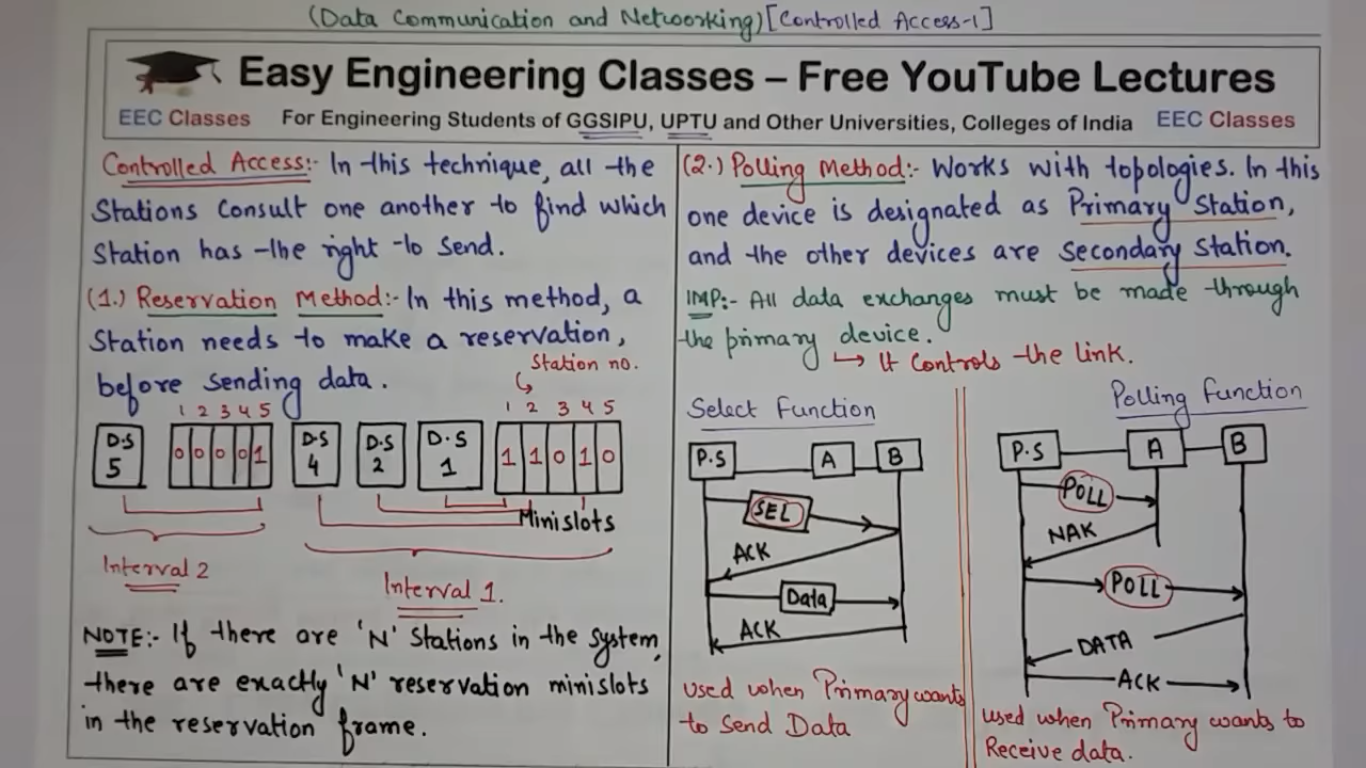 (Data Communication and Networking) [Controlled Access-1]
Easy Engineering Classes – Free YouTube Lectures
EEC Classes For Engineering Students of GGSIPU, UPTU and Other Universities, Colleges of India EEC Classes
Controlled Access:- In this technique, all the
Stations Consult one another to find which
Station has the right to send.
(1.) Reservation Method:- In this method, a
Station needs to make a reservation,
before sending data.
Station no.
1 2 3 4 5
1 2 3 4 5
D.S 5
0 0 0 0 1
D.S 4
D.S 2
D.S 1
1 1 0 1 0
Minislots
Interval 2
Interval 1.
NOTE:- If there are 'N' Stations in the system,
there are exactly 'N' reservation minislots
in the reservation frame.
(2.) Polling Method:- Works with topologies. In this
one device is designated as Primary Station,
and the other devices are Secondary Station.
IMP:- All data exchanges must be made through
the primary device.
↳ It Controls the link.
Select Function
P.S A B
SEL
ACK
Data
ACK
used when Primary wants
to Send Data
Polling Function
P.S A B
POLL
NAK
POLL
DATA
ACK
used when Primary wants to
Receive data.